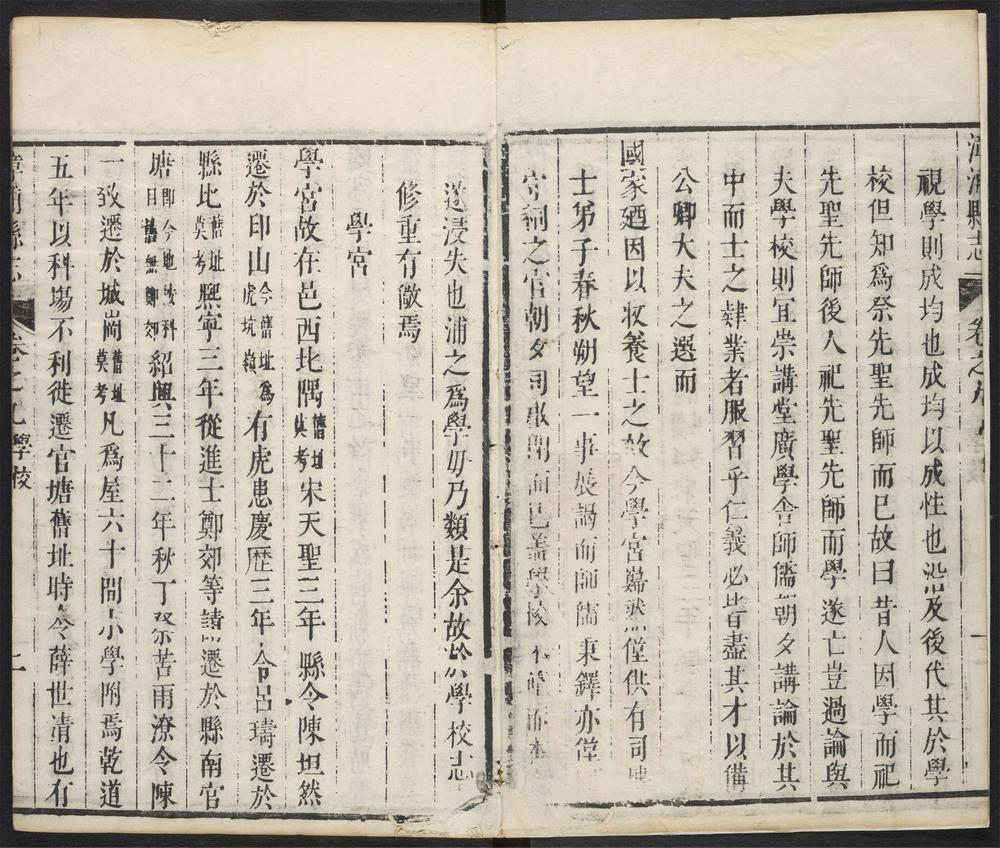 漳浦縣志 卷之九 學校
視學則成均也成均以成性也沿及後代其於學
校但知爲祭先聖先師而已故曰昔人因學而祀
先聖先師後人祀先聖先師而學遂亡豈過論與
夫學校則宜崇講堂廣學舍師儒朝夕講論於其
中而士之肄業者服習乎仁義必皆盡其才以備
公卿大夫之選而
國家廼因以收養士之效今學宮巋然僅供有司
士弟子春秋朔望一事展謁而師儒秉鐸亦僅
守祠之官朝夕司事門而已蓋學校不講而本
遂浸失也浦之爲學毋乃類是余故於學校志
修重有儆焉
學宮
學宮故在邑西北隅舊址莫考宋天聖三年縣令陳坦然
遷於印山今舊址爲虎坑嶺有虎患慶歷三年令呂璹遷於
縣比舊址莫考熙寧三年從進士鄭郊等請遷於縣南官
塘即今地按科目舊無鄭郊紹興三十二年秋丁祭苦雨潦令陳
一致遷於城崗舊址莫考凡爲屋六十間小學附焉乾道
五年以科塲不利徙遷官塘舊址時令薛世清也有
漳浦縣志 卷之九 學校 二